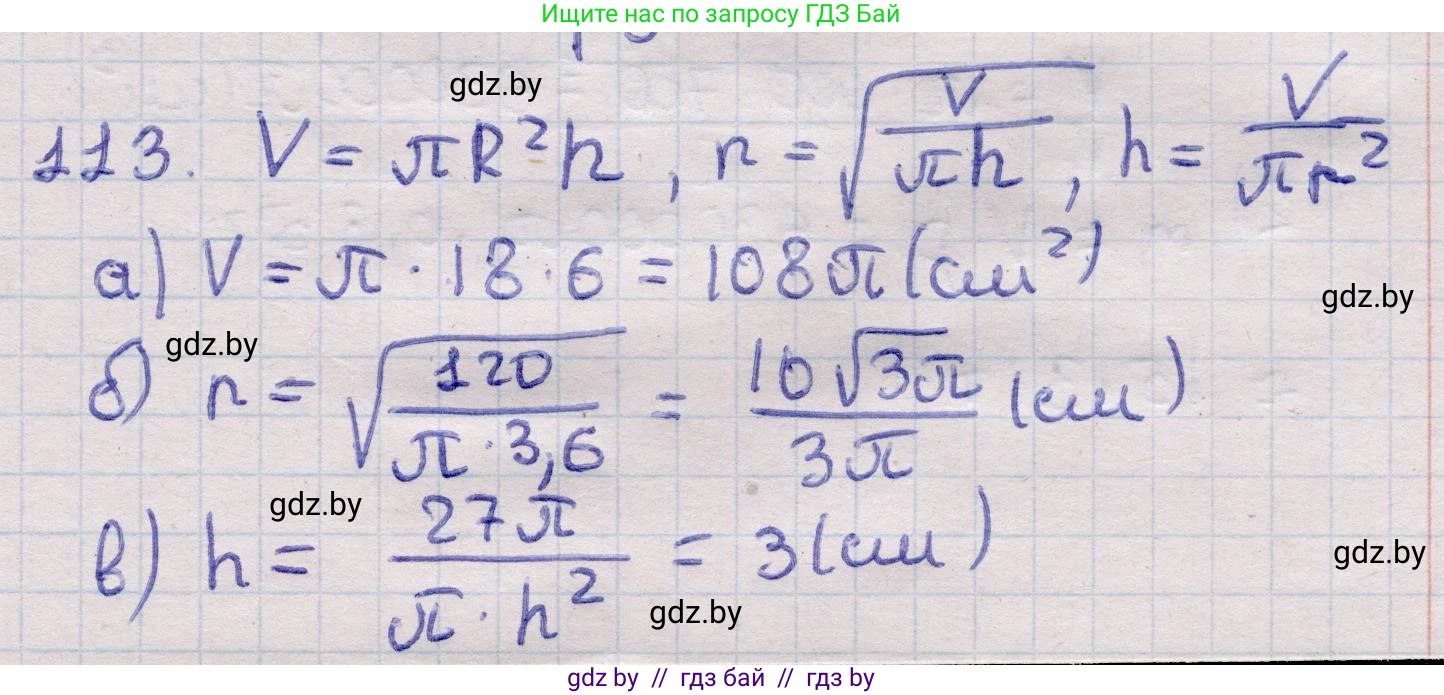 Ищите нас по запросу ГДЗ Бай
gdz.by
113. V = πR²h, r = √(V/(πh)), h = V/(πr²)
а) V = π · 18 · 6 = 108π (см²)
gdz.by
gdz.by
б) r = √(120/(π · 3,6)) = 10√3π/(3π) (см)
gdz.by
в) h = 27π/(π · h²) = 3 (см)
gdz.by
gdz.by
gdz.by // гдз бай // гдз by